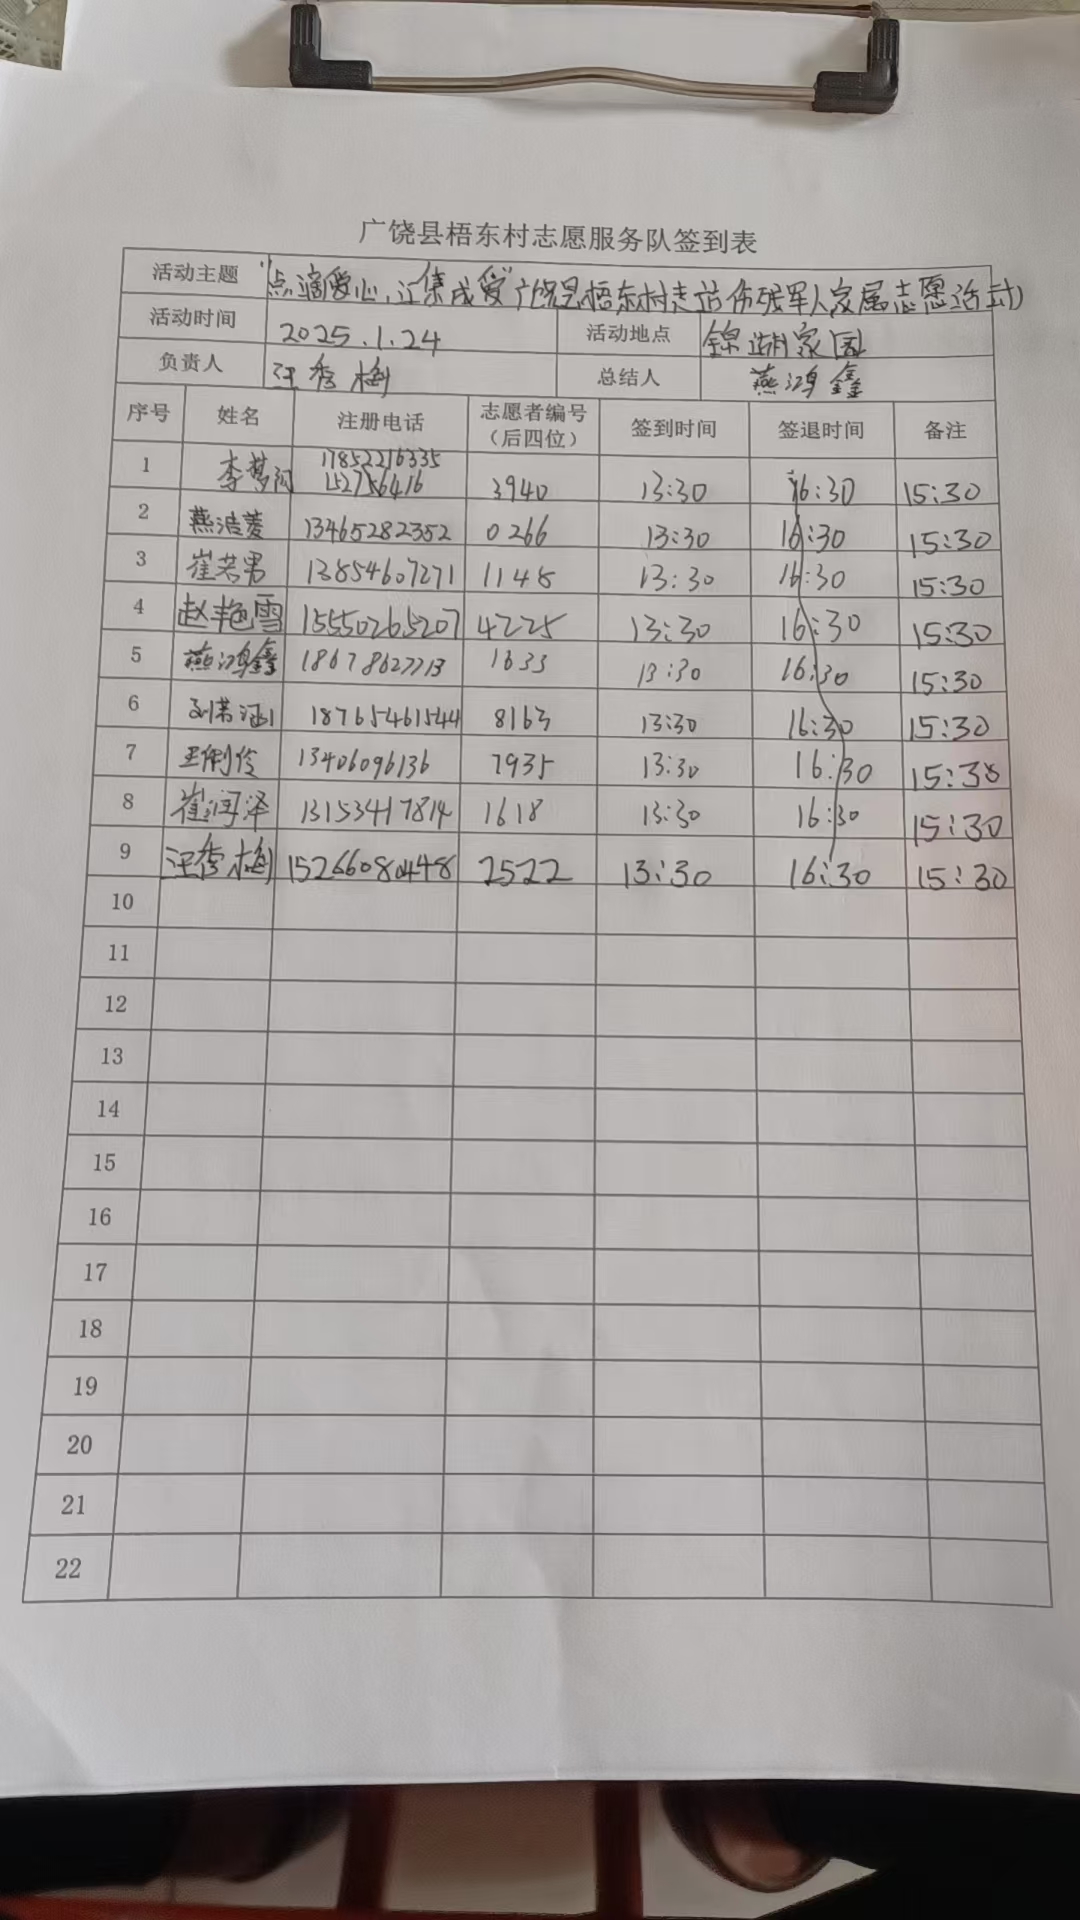 广饶县梧东村志愿服务队签到表
活动主题 "点滴爱心,汇集成爱"广饶县梧东村走访伤残军人家属志愿活动
活动时间 2025.1.24 活动地点 锦湖家园
负责人 汪秀梅 总结人 燕鸿鑫
序号 姓名 注册电话 志愿者编号(后四位) 签到时间 签退时间 备注
1 李梦 17852216335 152756416 3940 13:30 16:30 15:30
2 燕洁菱 13465282352 0266 13:30 16:30 15:30
3 崔若男 13854607271 1148 13:30 16:30 15:30
4 赵艳雪 15550265207 4225 13:30 16:30 15:30
5 燕鸿鑫 18678627713 1633 13:30 16:30 15:30
6 刘若涵 18765461544 8163 13:30 16:30 15:30
7 王俐伶 13406096136 7935 13:30 16:30 15:30
8 崔润泽 13153417814 1618 13:30 16:30 15:30
9 汪秀梅 15266080448 2522 13:30 16:30 15:30
10
11
12
13
14
15
16
17
18
19
20
21
22